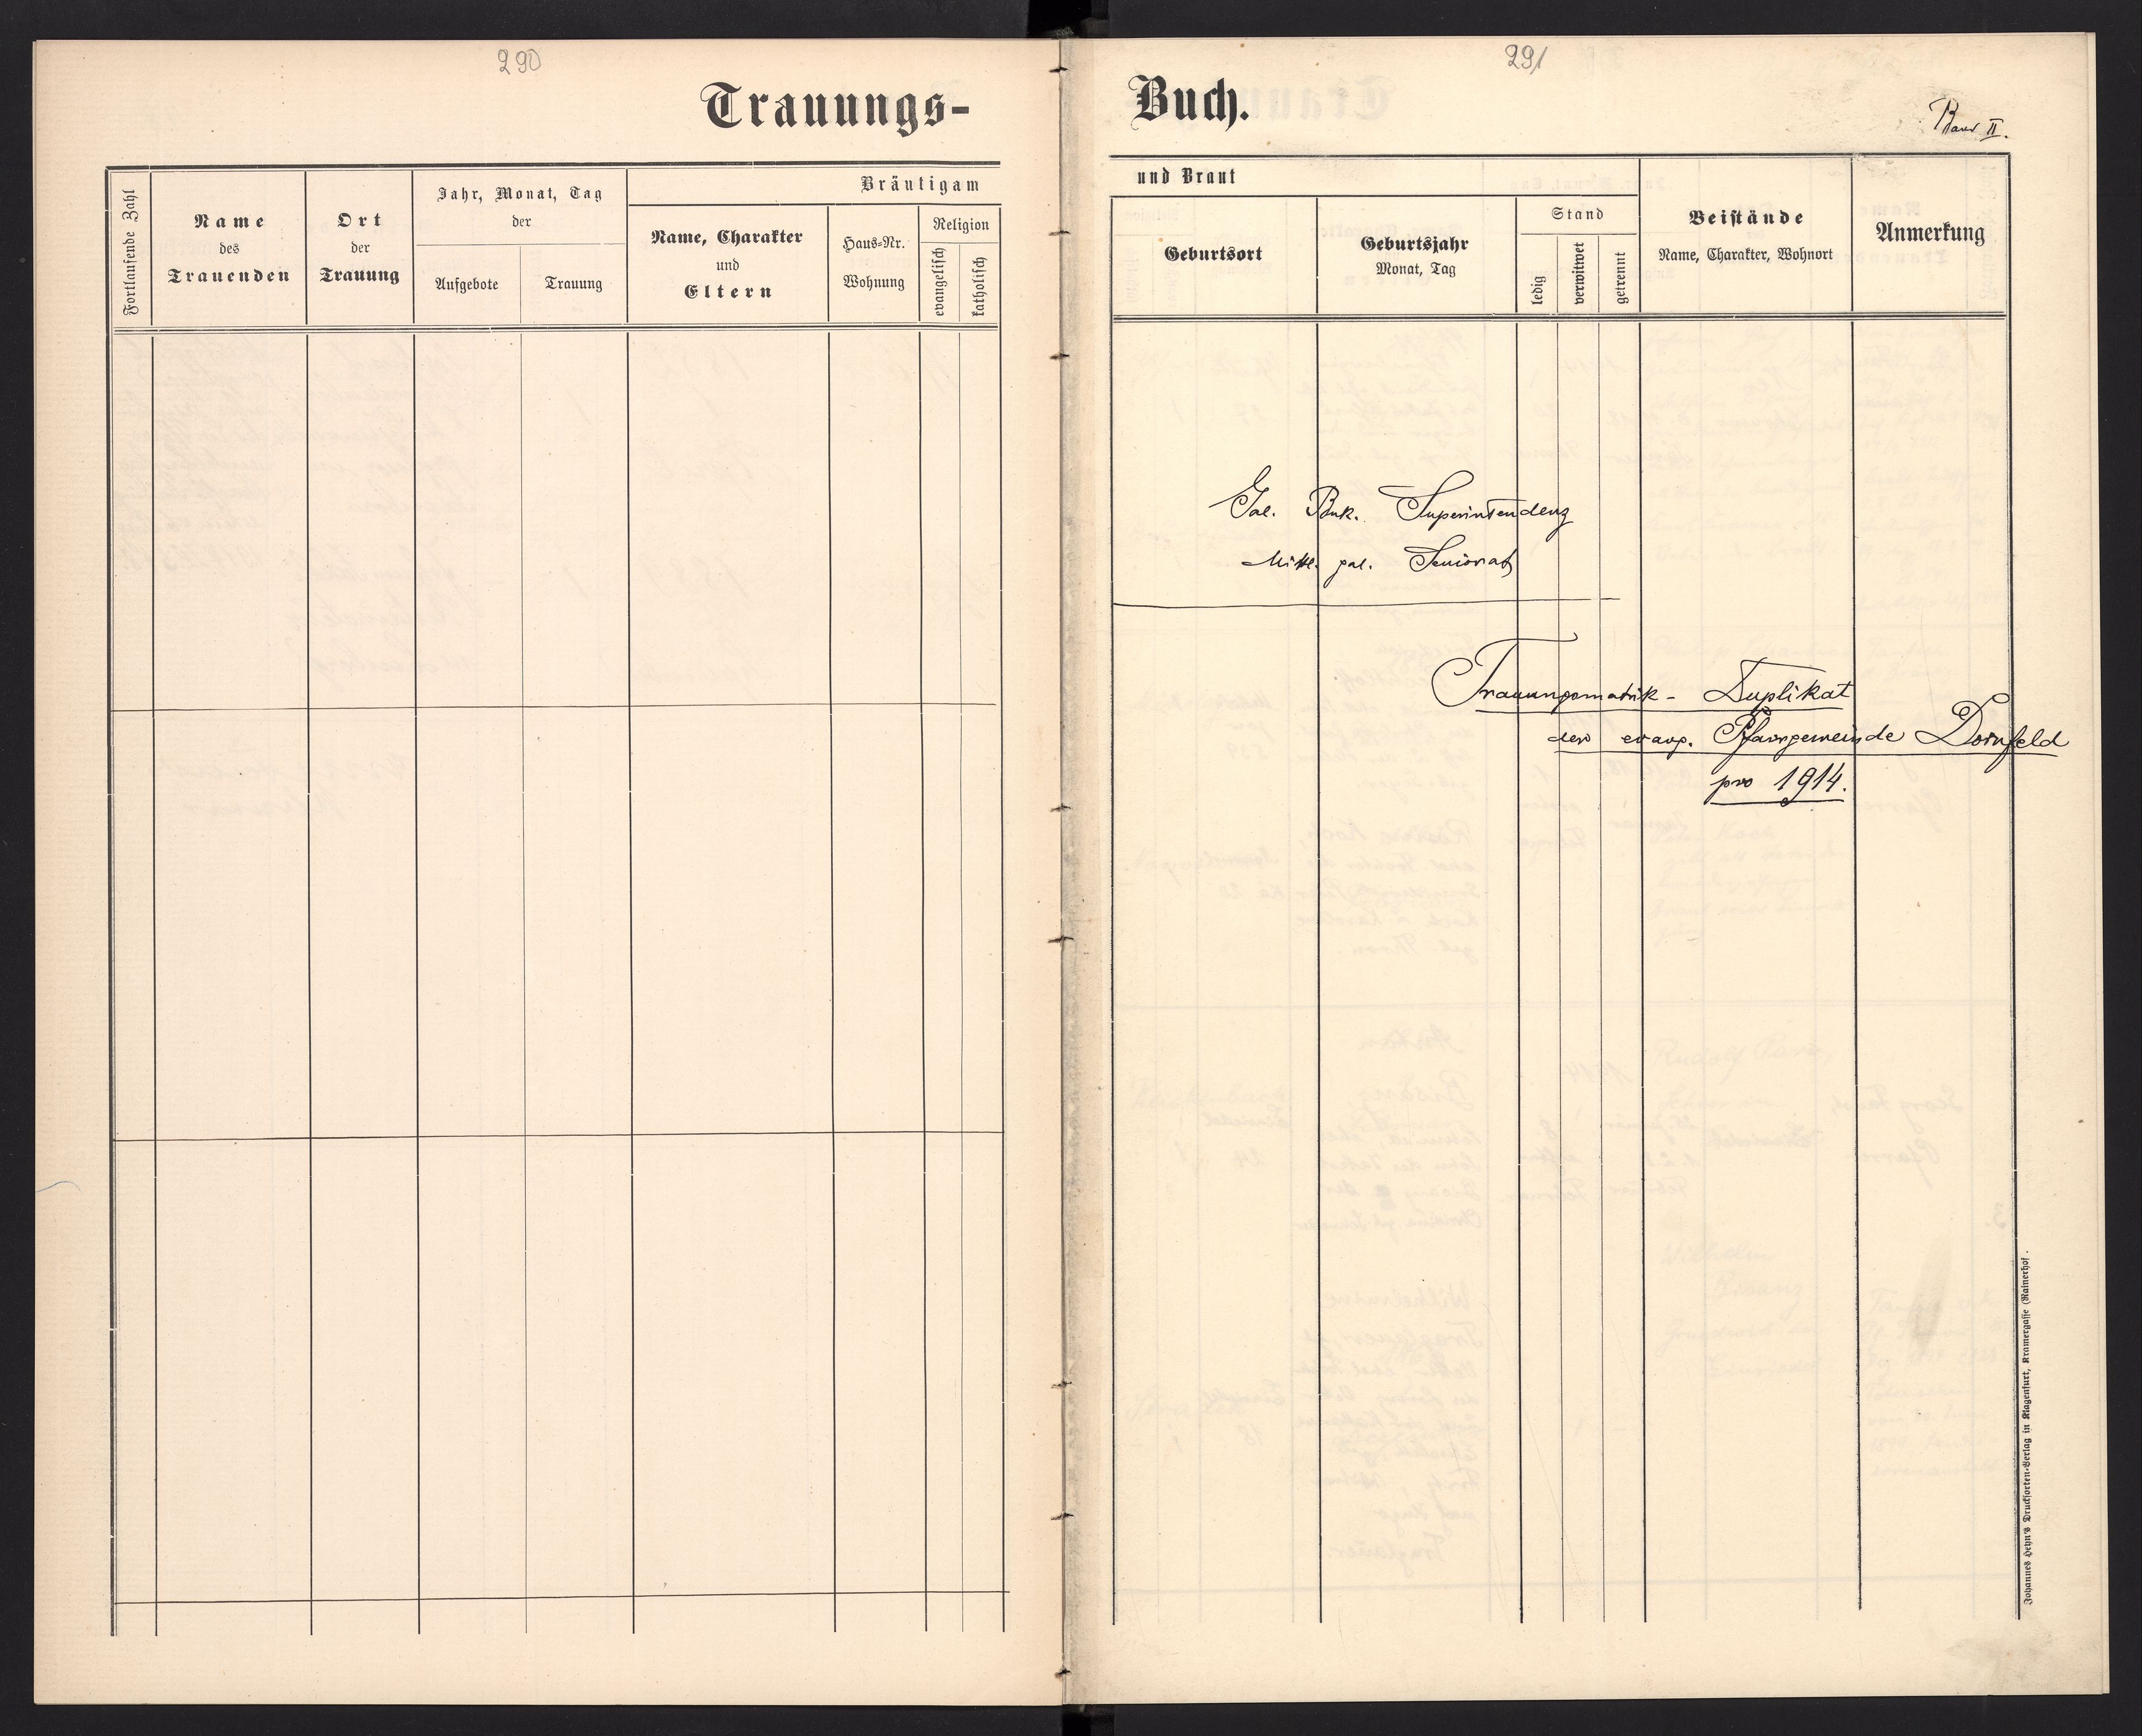 290
Trauungs-
Fortlaufende Zahl
Name
des
Trauenden
Ort
der
Trauung
Jahr, Monat, Tag
der
Aufgebote
Trauung
Bräutigam
Name, Charakter
und
Eltern
Haus-Nr.
Wohnung
Religion
evangelisch
katholisch
291
Buch.
Band II.
und Braut
Geburtsort
Geburtsjahr
Monat, Tag
Stand
ledig
verwitwet
getrennt
Beistände
Name, Charakter, Wohnort
Anmerkung
Gal. Buk. Superintendenz
Mittl. gal. Seniorat
Trauungsmatrik- Duplikat
der evang. Pfarrgemeinde Dornfeld
pro 1914.
Johannes Heyn's Drucksorten-Verlag in Klagenfurt, Kramergasse (Rainerhof.